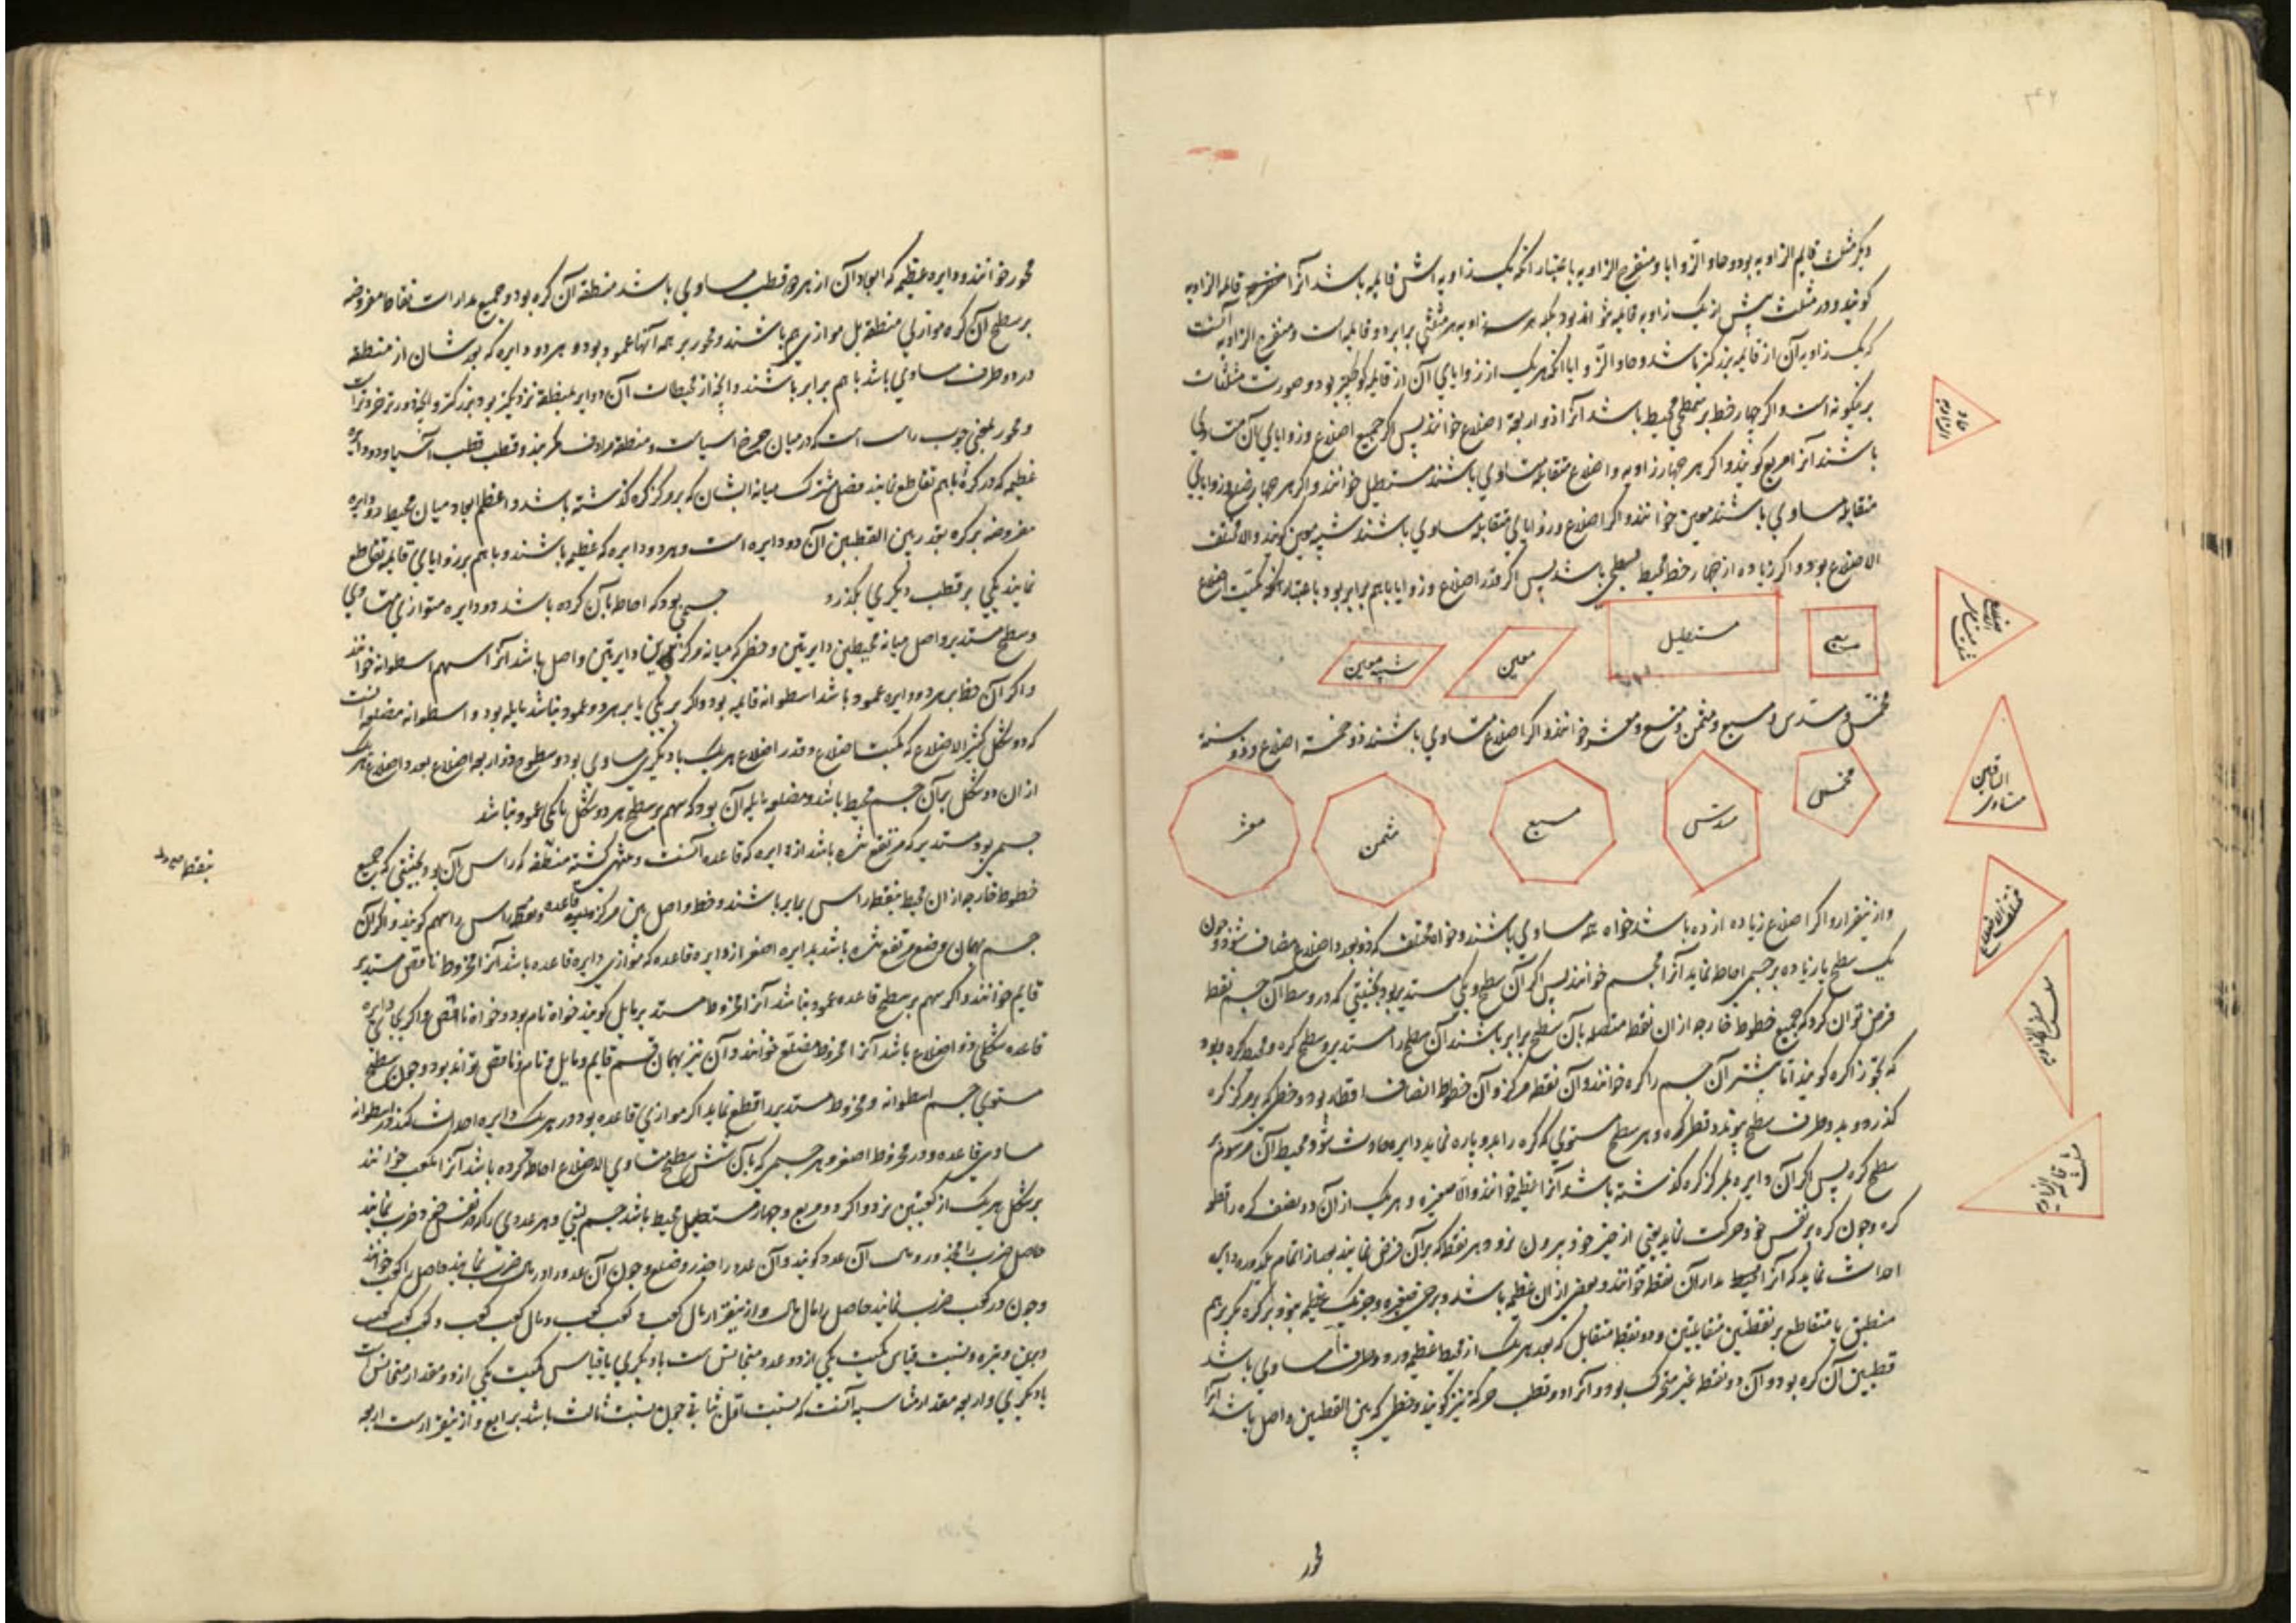 دیگر مثلث قایم الزاویه بود و حاد الزوایا و منفرج الزاویه باعتبار آنکه یک زاویه اش قایمه باشد آنرا قایمه الزاویه
کویند و در مثلث بیش از یک زاویه قایمه نتواند بود بلکه هر سه زاویه هر مثلثی برابر دو قایمه است و منفرج الزاویه آنست
که یک زاویه آن از قایمه بزرکتر باشد و حاد الزوایا آنکه هر یک از زوایای آن از قایمه کوچکتر بود و صورت مثلثات
برینکونه است و اکر چهار خط بر سطحی محیط باشد آنرا ذو اربعة اضلاع خوانند پس اکر جمیع اضلاع و زوایای آن متساوی
باشند آنرا مربع کویند و اکر هر چهار زاویه و اضلاع متقابله متساوی باشند مستطیل خوانند و اکر هر چهار ضلع و زوایای
متقابله مساوی باشند معین خوانند و اکر اضلاع و زوایای متقابله مساوی باشند شبیه معین کویند و الا مختلف
الاضلاع بود و اکر زیاده از چهار خط محیط بسطحی باشد پس اکر قدر اضلاع و زوایا باهم برابر بود باعتبار آنکه کمیت اضلاع
مربع
مستطیل
معین
شبیه معین
مخمس و مسدس و مسبع و مثمن و متسع و معشر خوانند و اکر اضلاع متساوی باشند ذو خمسة اضلاع و ذو ستة
مخمس
مسدس
مسبع
مثمن
معشر
و ازینقرار و اکر اضلاع زیاده از ده باشد خواه همه مساوی باشند و خواه مختلف که ذو بود و اضلاع مضاف شود و چون
یک سطح یا زیاده بر جسمی احاطه نماید آنرا مجسم خوانند پس اکر آن سطح یکی مستدیر بود بحیثیتی که در وسط آن جسم نقطه
فرض توان کرد که جمیع خطوط خارجه از آن نقطه متصله بآن سطح برابر باشند آن سطح را مستدیر و سطح کره و محیط کره بود
که بتجوز اکره کویند اما بیشتر آن جسم را کره خوانند و آن نقطه مرکز و آن خطوط انصاف اقطار بود و خطی که بر مرکز کره
کذرد و بدو طرف سطح پیوندد قطر کره و هر سطح مستوی که کره را بدو پاره نماید دایره حادث شود و محیط آن مرسوم بر
سطح کره پس اکر آن دایره بمرکز کره کذشته باشد آنرا عظیمه خوانند و الا صغیره و هر یک از آن دو نصف کره را قطعه
کره و چون کره بر نفس خود حرکت نماید یعنی از حیز خود بیرون نرود هر نقطه که بر آن فرض نمایند بعد از اتمام یکدوره دایره
احداث نماید که آنرا محیط مدار آن نقطه خوانند و بعضی از آن عظیمه باشد و برخی صغیره و جز یک عظیمه نبود و بر کره
منطبق یا متقاطع بر نقطتین متقابلتین و دو نقطه متقابل که بعد هر یک از محیط عظیمه در دو طرف مساوی باشد
قطبین آن کره بود و آن دو نقطه غیر متحرک بود و آنرا دو قطب حرکه نیز کویند و خطی که بین القطبین واصل باشد آنرا
محور
حاد الزوایا
متساوی الاضلاع
متساوی الساقین
مختلف الاضلاع
مثلث منفرج الزاویه
مثلث قایم الزاویه
محور خوانند و دایره عظیمه که ابعاد آن از هر دو قطب مساوی باشد منطقه آن کره بود و جمیع مدارات نقاط مفروضه
بر سطح آن کره موازی منطقه بل موازی هم باشند و محور بر همه آنها عمود بود و هر دو دایره که بعدشان از منطقه
در دو طرف مساوی باشد باهم برابر باشند و آنچه از محیطات آن دوایر بمنطقه نزدیکتر بود بزرکتر و آنچه دورتر خردتر است
و محور بمعنی چوب راست است که در میان چرخ آسیاست و منطقه مرادف کمربند و قطب قطب آسیا و دو دایره
عظیمه که در کره باهم تقاطع نمایند فصل مشترک میانه ایشان که بر مرکز کره کذشته باشد و اعظم ابعاد میان محیط دو دایره
مفروضه بر کره بقدر بین القطبین آن دو دایره است و هر دو دایره که عظیمه باشند و باهم بر زوایای قایمه تقاطع
نمایند یکی بر قطب دیکری بکذرد جسمی بود که احاطه بآن کرده باشد دو دایره متوازی متساوی
و سطح مستدیر واصل میانه محیطین دایرتین و خطی که میانه مرکزین دایرتین واصل باشد آنرا سهم اسطوانه خوانند
و اکر آن خط بر هر دو دایره عمود باشد اسطوانه قایمه بود و اکر بر یکی یا بر هر دو عمود نباشد مایله بود و اسطوانه مضلعه آنست
که دو شکل کثیر الاضلاع که بکمیت اضلاع و قدر اضلاع هر یک با دیکری مساوی بود و سطوح ذو اربعه اضلاع بعدد اضلاع هر یک
از آن دو شکل بر آن جسم محیط باشد و مضلعه مایله آن بود که سهم بر سطح هر دو شکل یا یکی عمود نباشد
جسمی بود مستدیر که مرتفع شده باشد از دایره که قاعده آنست و منتهی کشته بنقطه که راس آن بود بحیثیتی که جمیع
خطوط خارجه از آن محیط بنقطه راس برابر باشند و خط واصل بین مرکز قاعده و نقطه راس را سهم کویند و اکر آن
جسم بهمان وضع مرتفع شده باشد بدایره اصغر از دایره قاعده که موازی دایره قاعده باشد آنرا مخروط ناقص مستدیر
قایم خوانند و اکر سهم بر سطح قاعده عمود نباشد آنرا مخروط مستدیر مایل کویند خواه تام بود و خواه ناقص و اکر بجای دایره
قاعده شکلی ذو اضلاع باشد آنرا مخروط مضلع خوانند و آن نیز بهمان قسم قایم و مایل و تام و ناقص تواند بود و چون سطح
مستوی جسم اسطوانه و مخروط مستدیر را قطع نماید اکر موازی قاعده بود در هر یک دایره احداث کند در اسطوانه
مساوی قاعده و در مخروط اصغر و هر جسمی که بآن شش سطح متساوی الاضلاع احاطه کرده باشد آنرا مکعب خوانند
بر شکل هر یک از کعبتین نرد و اکر دو مربع و چهار مستطیل محیط باشد جسم لبنی و هر عددی را که در نفس خود ضرب نمایند
حاصل ضرب را مجذور و مال آن عدد کویند و آن عدد را جذر و ضلع و چون آن عدد را در مال ضرب نمایند حاصل را کعب خوانند
و چون در کعب ضرب نمایند حاصل را مال مال و ازینقرار مال کعب و کعب کعب و مال کعب کعب و کعب کعب کعب
و نسبت قیاس کمیت یکی از دو عدد متجانس است با دیکری یا قیاس کمیت یکی از دو مقدار متجانس است
با دیکری و اربعه مقدار متناسبه آنست که نسبت اول بثانی چون نسبت ثالث باشد برابع و ازینقرار است اربعه